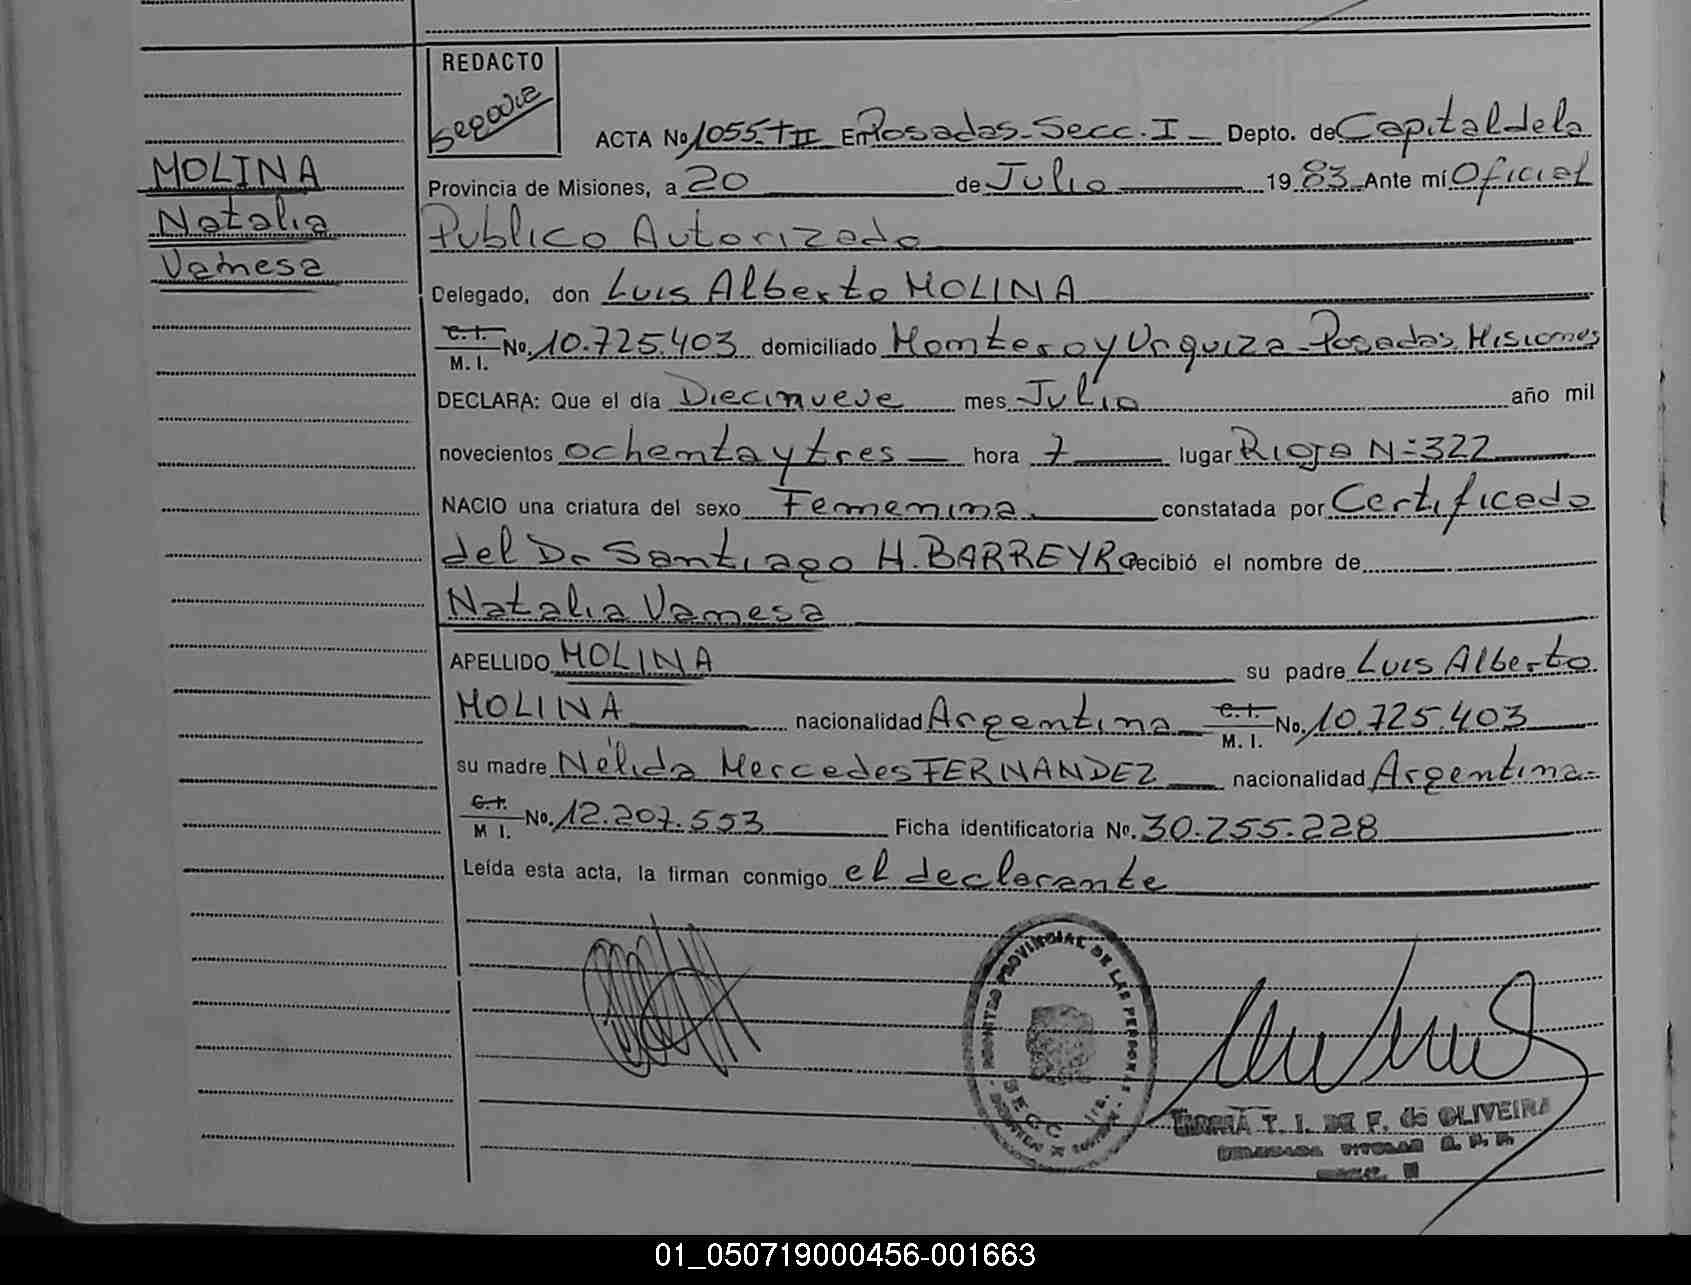 REDACTO
ACTA No 1055-TII En Posadas-Secc. I - Depto. de Capital de la
MOLINA
Natalia
Vanesa
Provincia de Misiones, a 20 de Julio 19 83 Ante mí Oficial
Publico Autorizado
Delegado, don Luis Alberto MOLINA
C. I.
M. I. No. 10.725.403 domiciliado Montero y Urquiza-Posadas Misiones
DECLARA: Que el día Diecinueve mes Julio año mil
novecientos ochenta y tres hora 7 lugar Rioja N=322
NACIO una criatura del sexo Femenina constatada por Certificado
del Dr Santiago H. BARREYRO recibió el nombre de
Natalia Vanesa
APELLIDO MOLINA su padre Luis Alberto
MOLINA nacionalidad Argentina C. I.
M. I. No. 10.725.403
su madre Nélida Mercedes FERNANDEZ nacionalidad Argentina
C. I.
M I. No. 12.207.553 Ficha identificatoria No. 30.255.228
Leída esta acta, la firman conmigo el declarante
PROVINCIAL DE LAS PERSONAS
SECC
T. I. DE F. de OLIVEIRA
TITULAR
01_050719000456-001663